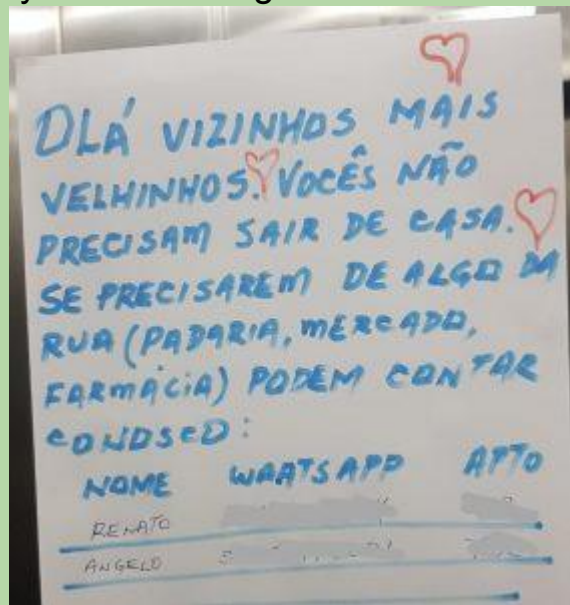 OLÁ VIZINHOS MAIS
VELHINHOS. VOCÊS NÃO
PRECISAM SAIR DE CASA.
SE PRECISAREM DE ALGO DA
RUA (PADARIA, MERCADO,
FARMÁCIA) PODEM CONTAR
CONOSCO:
NOME WHATSAPP APTO
RENATO
ANGELO